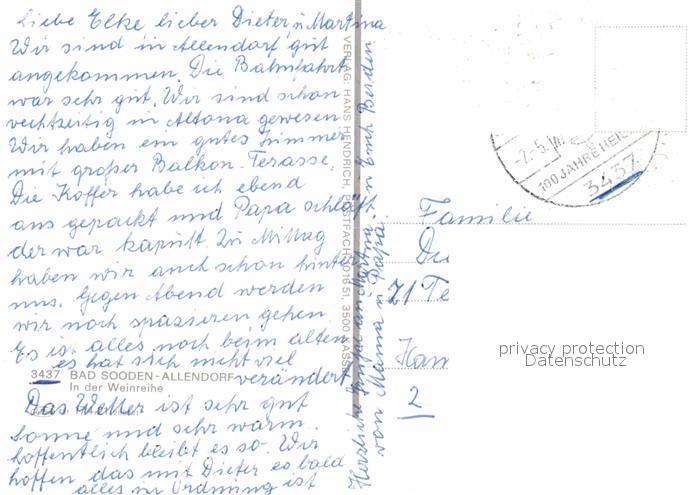 Liebe Elke lieber Dieter u Martina
Wir sind in Allendorf gut
angekommen. Die Bahnfahrt
war sehr gut. Wir sind schon
rechtzeitig in Altona gewesen.
Wir haben ein gutes Zimmer
mit großer Balkon-Terasse,
Die Koffer habe ich ebend
aus gepackt und Papa schläft
der war kaputt. Zu Mittag
haben wir auch schon hinter
uns. Gegen Abend werden
wir noch spazieren gehen
Es ist alles noch beim alten
es hat sich nicht viel
verändert
3437 BAD SOODEN-ALLENDORF
In der Weinreihe
Das Wetter ist sehr gut
Sonne und sehr warm.
hoffentlich bleibt es so. Wir
hoffen das mit Dieter es bald
alles in Ordnung ist
VERLAG: HANS HENDRICH, POSTFACH 101651, 3500 KASSEL
Herzliche Grüße an Martina u Euch Beiden
von Mama u Papa.
-7.5.
100 JAHRE HEIL
3437
Familie
Du
71 Te
Ham
2
privacy protection
Datenschutz